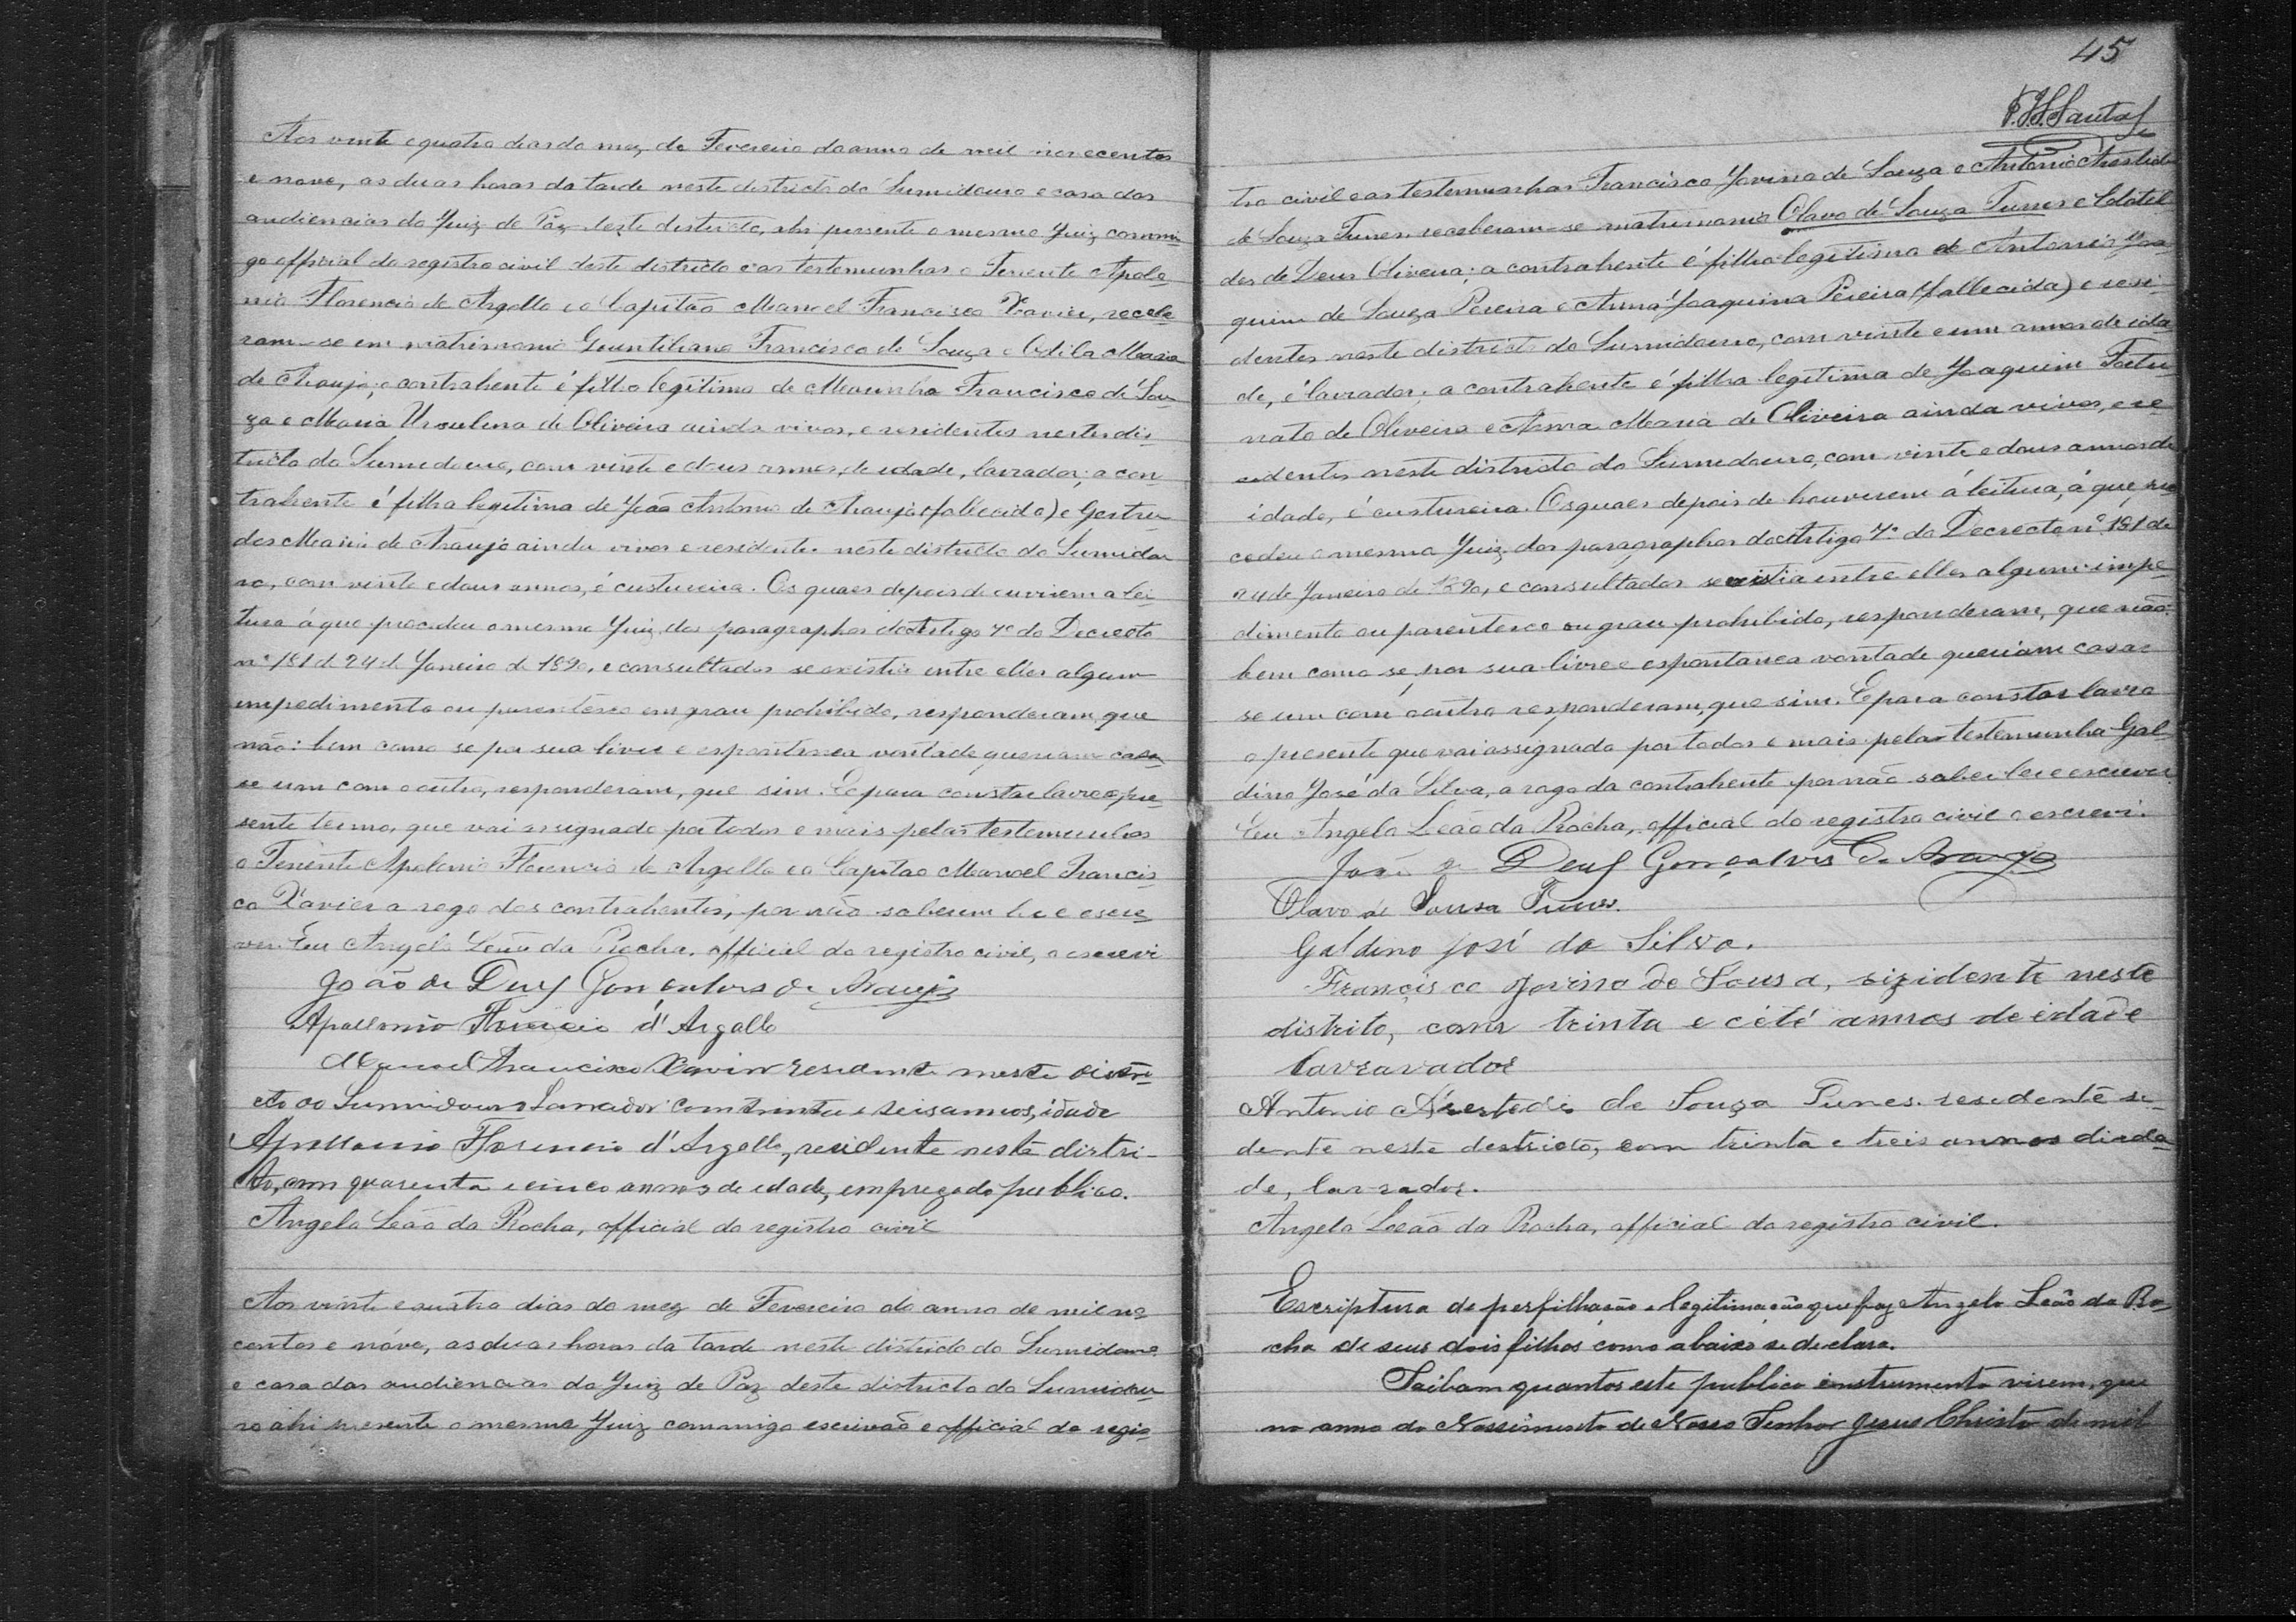 Aos vinte e quatro dias do mez de Fevereiro do anno de mil novecentos
e nove, as duas horas da tarde neste districto do Sumidouro e casa das
audiencias do Juiz de Paz deste districto, ahi presente o mesmo Juiz, commi-
go official do registro civil deste districto e as testemunhas o Tenente Apolo-
nio Florencio de Argollo e o Capitão Manoel Francisco Xavier, recebe-
ram-se em matrimonio Guintiliano Francisco de Souza e Odila Maria
de Araujo; o contrahente é filho legitimo de Francisco de Sou-
za e Maria Ursulina de Oliveira ainda vivos, e residentes neste dis-
tricto do Sumidouro, com vinte e dous annos, de idade, lavrador; a con-
trahente é filha legitima de João Antonio de Araujo (fallecido) e Gertru-
des Maria de Araujo ainda vivos e residentes neste districto do Sumidou-
ro, com vinte e dous annos, é custureira. Os quaes depois de ouvirem a lei-
tura á que procedeu o mesmo Juiz, dos paragraphos do Artigo 7º do Decreto
nº 181 de 24 de Janeiro de 1890, e consultados se existia entre elles algum
impedimento ou parentesco em grau prohibido, responderam, que
não: bem como se por sua livre e espontanea vontade queriam casa-
se um com o outro, responderam, que sim. E para constar lavro o pre-
sente termo, que vai assignado por todos e mais pelas testemunhas
o Tenente Apolonio Florencio de Argollo e o Capitão Manoel Francis-
co Xavier a rogo dos contrahentes, por não saberem ler e escre-
ver. Eu Angelo Leão da Rocha, official do registro civil, o escrevi
João de Deus Gonçalves de Araujo
Apollonio Florencio d'Argollo
Manoel Francisco Xavier residente neste distri-
cto do Sumidouro Lavrador com trinta e seis annos, idade
Apollonio Florencio d'Argollo, residente neste distri-
cto, com quarenta e cinco annos de idade, empregado publico.
Angelo Leão da Rocha, official do registro civil
Aos vinte e quatro dias do mez de Fevereiro do anno de mil no-
centos e nóve, as duas horas da tarde neste districto do Sumidouro
e casa das audiencias do Juiz de Paz deste districto do Sumidou-
ro ahi presente o mesmo Juiz commigo escrivão e official do regis-
45
Santos
tro civil e as testemunhas Francisco Jovino de Souza e Antonio
de Souza Tunes, receberam-se matrimonio Olavo de Souza Tunes e Clotil-
des de Deus Oliveira; o contrahente é filho legitimo de Antonio Joa-
quim de Souza Pereira e Anna Joaquina Pereira (fallecida) e resi-
dentes neste districto do Sumidouro, com vinte e um annos de ida-
de, é lavrador; a contrahente é filha legitima de Joaquim Fortu-
nato de Oliveira e Anna Maria de Oliveira ainda vivos, e re-
sidentes neste districto do Sumidouro, com vinte e dous annos de
idade, é custureira. Os quaes depois de houverem á leitura, á que pro-
cedeu o mesmo Juiz, dos paragraphos do Artigo 7º do Decrecto nº 181 de
24 de Janeiro de 1890, e consultados se existia entre elles algum impe-
dimento ou parentesco ou grau prohibido, responderam, que não:
bem como se por sua livre e espontanea vontade queriam casar
se um com o outro responderam, que sim. E para constar lavro
o presente que vai assignado por todos e mais pela testemunha Gal-
dino José da Silva, a rogo da contrahente por não saber ler e escrever.
Eu Angelo Leão da Rocha, official do registro civil o escrevi.
João de Deus Gonçalves de Araujo
Olavo de Sousa Tunes.
Galdino José da Silva.
Francisco Jovino de Sousa, rizidente neste
distrito, com trinta e cété annos de idade
Lavravador
Antonio de Souza Tunes. residente si-
dente neste destricto, com trinta e treis annos di eda-
de, lavrador.
Angelo Leão da Rocha, official do registro civil.
Escriptura de perfilhasão e legitimação que faz Angelo Leão da Ro-
cha de seus dois filhos como abaixo se declara.
Saibam quantos este publico instrumento virem, que
no anno do Nassimento de Nosso Senhor Jesus Christo de mil